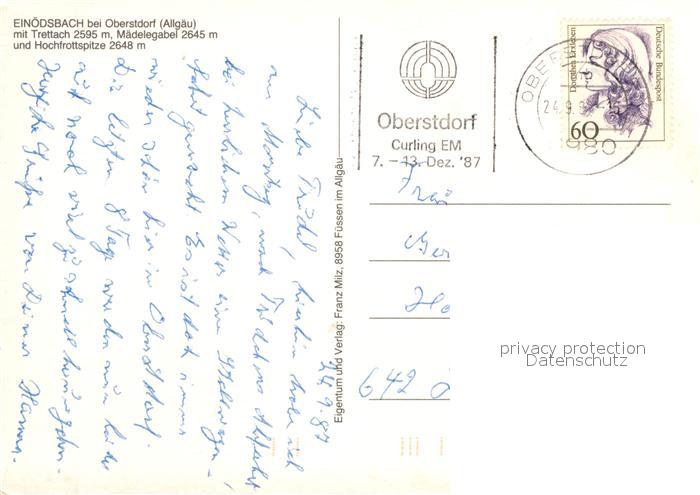 EINÖDSBACH bei Oberstdorf (Allgäu)
mit Trettach 2595 m, Mädelegabel 2645 m
und Hochfrottspitze 2648 m
24.9.87
Liebe Trudel, hierhin habe ich
am Montag, nach Trudchens Abfahrt
bei herrlichem Wetter eine Stellwagen-
fahrt gemacht. Es ist doch immer
wieder schön hier in Oberstdorf.
Die letzten 8 Tage werden mir leider
auch noch viel zu schnell herumgehn.
Herzliche Grüße von Deiner
Eigentum und Verlag: Franz Milz, 8958 Füssen im Allgäu
Oberstdorf
Curling EM
7. – 13. Dez. '87
OBER
24.9.
980
Dorothea Erxleben
Deutsche Bundespost
60
Frau
Ger
Ho
642
privacy protection
Datenschutz